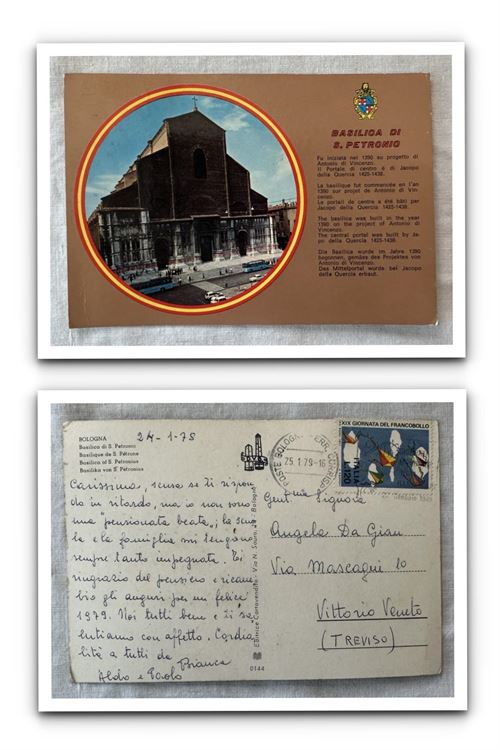 BASILICA DI
S. PETRONIO
Fu iniziata nel 1390 su progetto di
Antonio di Vincenzo.
Il Portale di centro è di Jacopo
della Quercia 1425-1438.
La basilique fut commencée en l'an
1390 sur projet de Antonio di Vin-
cenzo.
Le portail de centre a été bâti par
Jacopo della Quercia 1425-1438.
The basilica was built in the year
1390 on the project of Antonio di
Vincenzo.
The central portal was built by Ja-
copo della Quercia 1425-1438.
Die Basilika wurde im Jahre 1390
begonnen, gemäss des Projektes von
Antonio di Vincenzo.
Das Mittelportal wurde bei Jacopo
della Quercia erbaut.
BOLOGNA
Basilica di S. Petronio
Basilique de S. Pétrone
Basilica of S. Petronius
Basilika von S. Petronius
24-1-78
Carissima, scusa se ti rispon
do in ritardo, ma io non sono
una "pensionata beata"; la scuo
la e la famiglia mi tengono
sempre tanto impegnata. Ti
ringrazio del pensiero e ricam
bio gli auguri per un felice
1979. Noi tutti bene e ti sa
lutiamo con affetto. Cordia
lità a tutti da Bianca
Aldo e Paolo
Editrice Carravendita - Via N. Sauro, - Bologna
0144
XIX GIORNATA DEL FRANCOBOLLO
ITALIA
POSTE BOLOGNA FERR. CORRISP.
25.1.79-16
Gent.ma Signora
Angela Da Gian
Via Mascagni 10
Vittorio Veneto
(TREVISO)